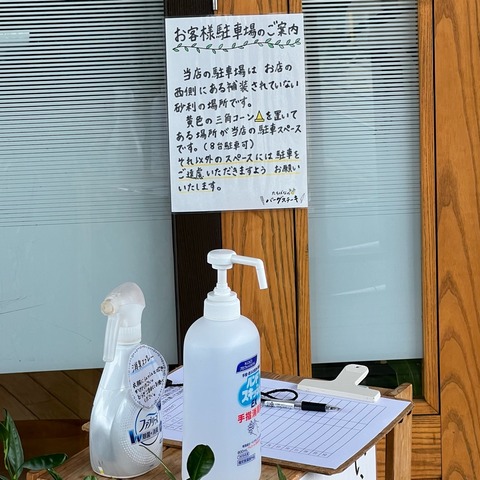 お客様駐車場のご案内
当店の駐車場は お店の
西側にある補装されていない
砂利の場所です。
黄色の三角コーン を置いて
ある場所が当店の駐車スペース
です。(8台駐車可)
それ以外のスペースには駐車を
ご遠慮いただきますよう お願い
いたします。
バーグステーキ
消臭スプレー
ファブリーズ
手指消毒